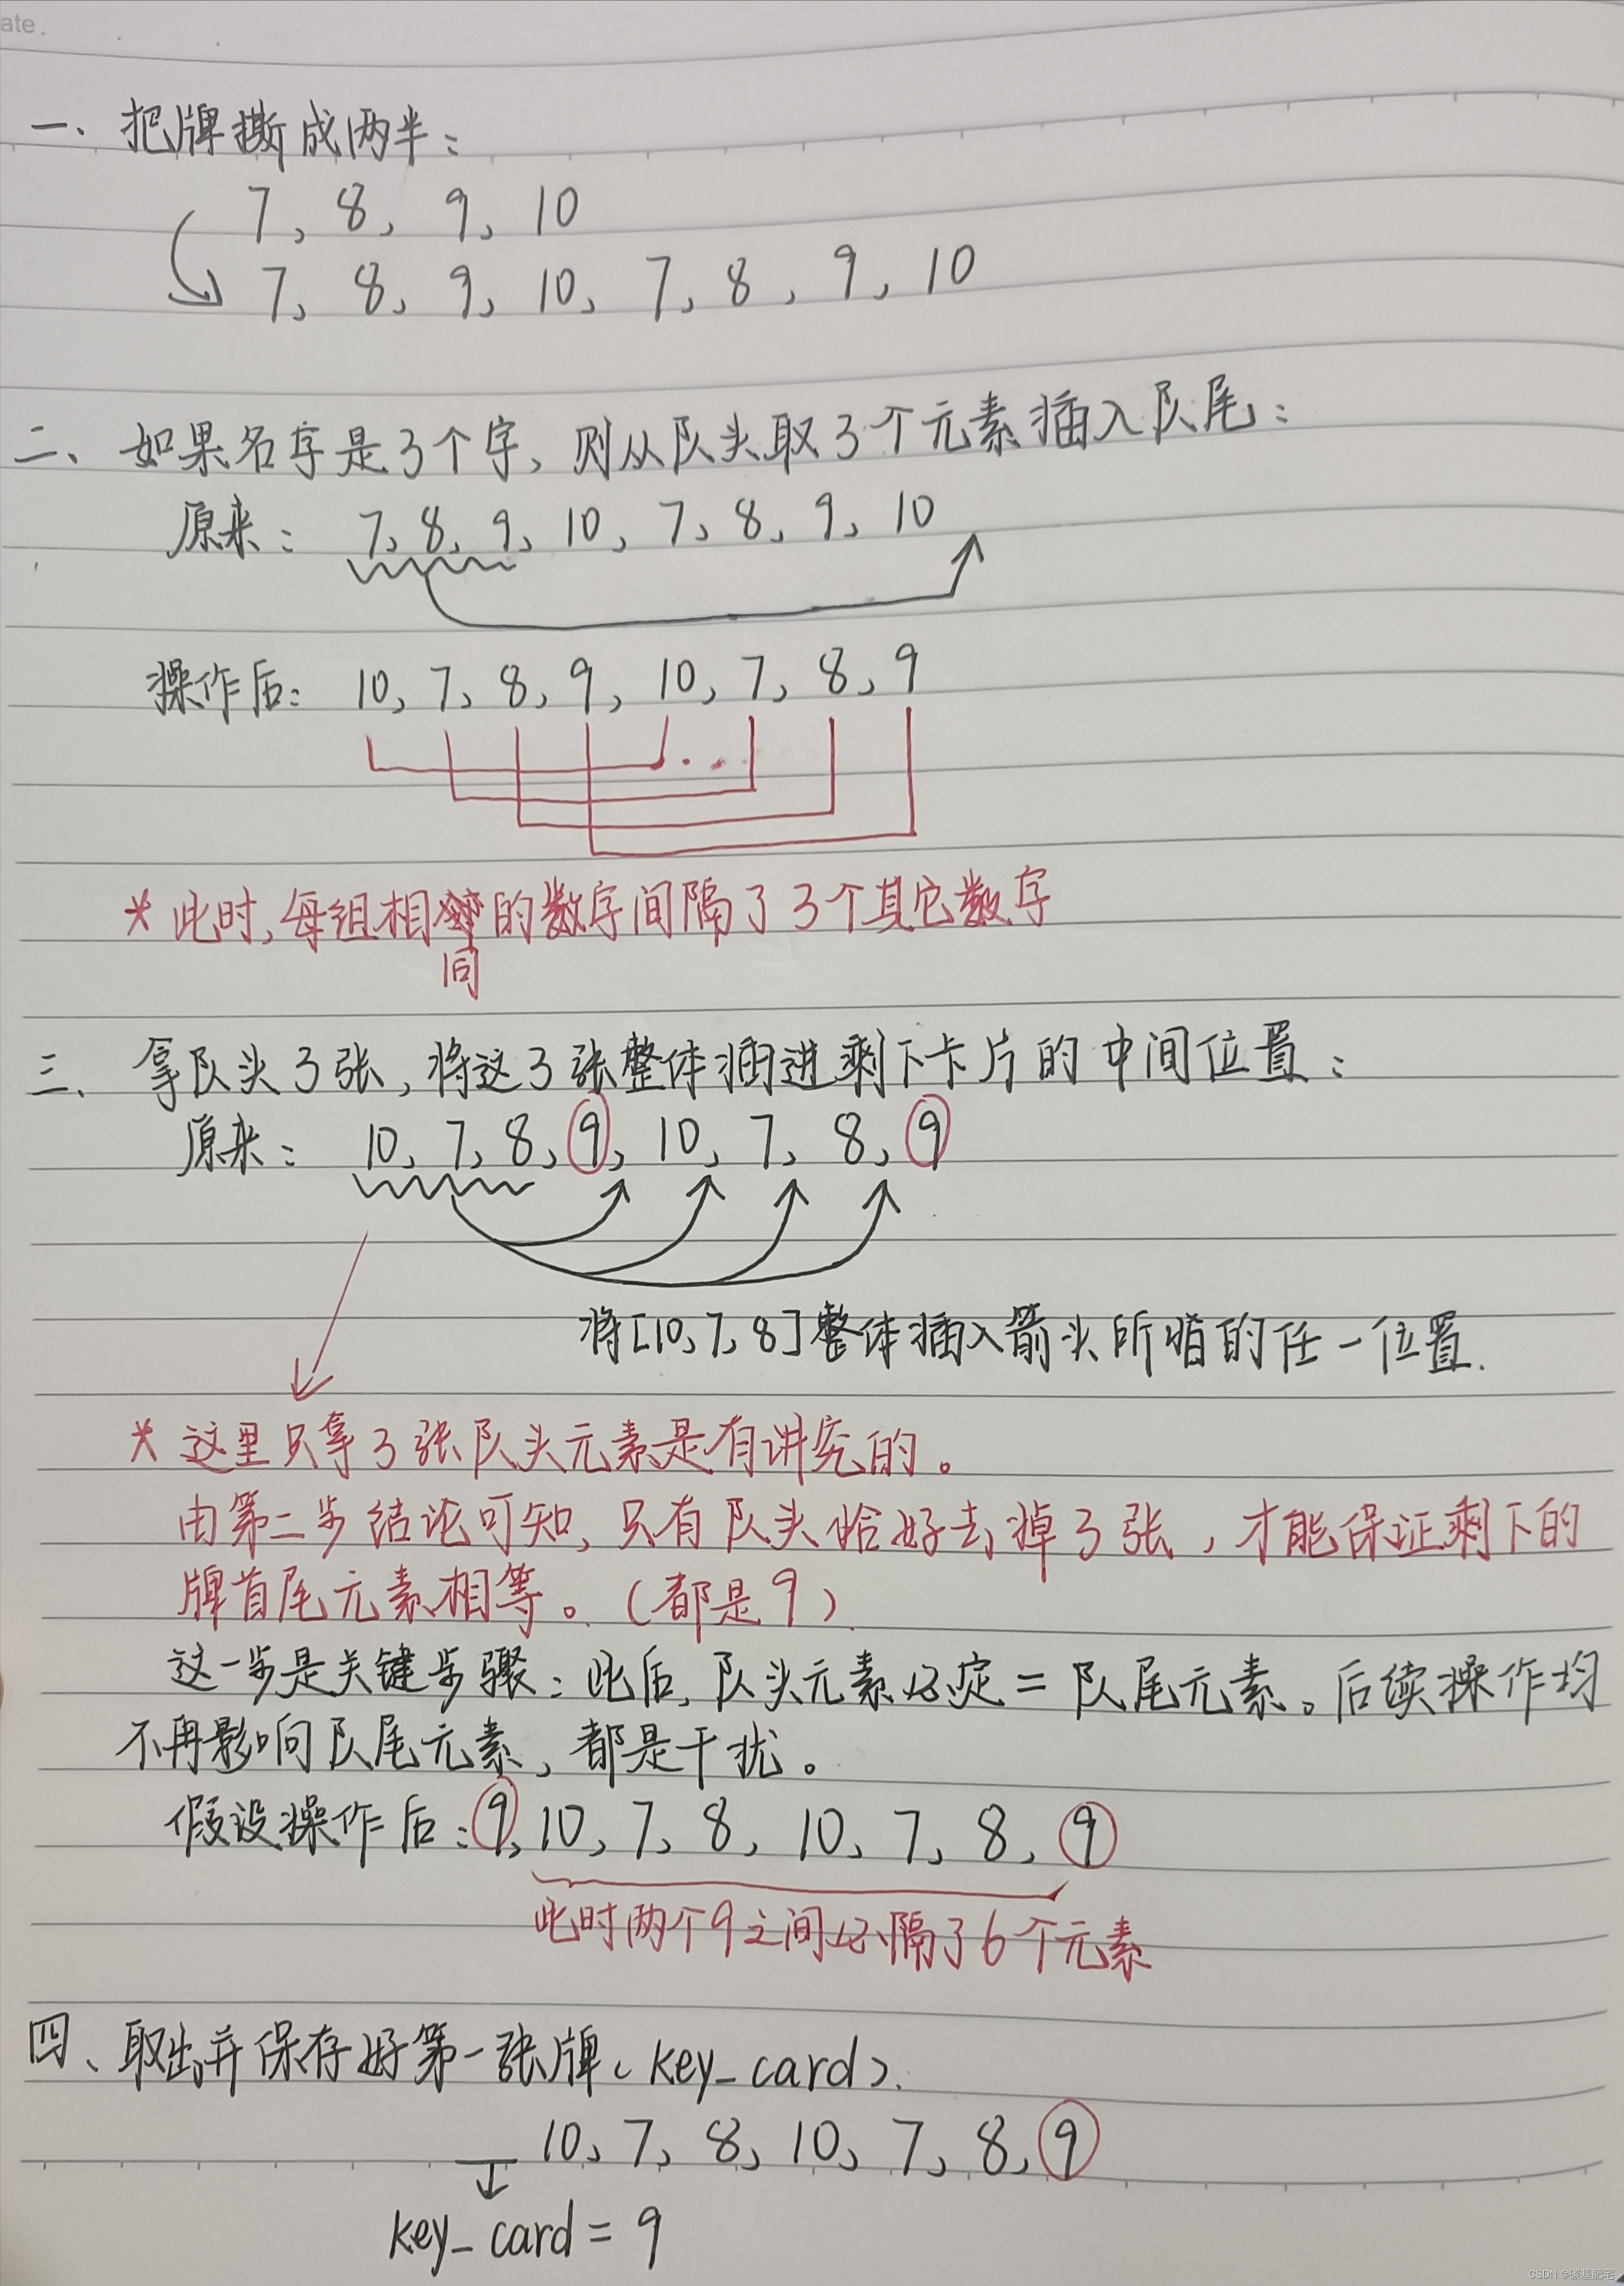 ate.
一、把牌撕成两半：
7, 8, 9, 10
7, 8, 9, 10, 7, 8, 9, 10
二、如果名字是3个字，则从队头取3个元素插入队尾：
原来： 7, 8, 9, 10, 7, 8, 9, 10
操作后： 10, 7, 8, 9, 10, 7, 8, 9
* 此时，每组相的数字间隔了3个其它数字
同
三、拿队头3张，将这3张整体插进剩下卡片的中间位置：
原来： 10, 7, 8, 9, 10, 7, 8, 9
将[10, 7, 8]整体插入箭头所指的任一位置.
* 这里只拿3张队头元素是有讲究的。
由第二步结论可知，只有队头恰好去掉3张，才能保证剩下的
牌首尾元素相等。（都是9）
这一步是关键步骤：此后，队头元素必定=队尾元素。后续操作均
不再影响队尾元素，都是干扰。
假设操作后：9, 10, 7, 8, 10, 7, 8, 9
此时两个9之间必隔了6个元素
四、取出并保存好第一张牌（key_card）.
10, 7, 8, 10, 7, 8, 9
key_card = 9
CSDN @碳基肥宅